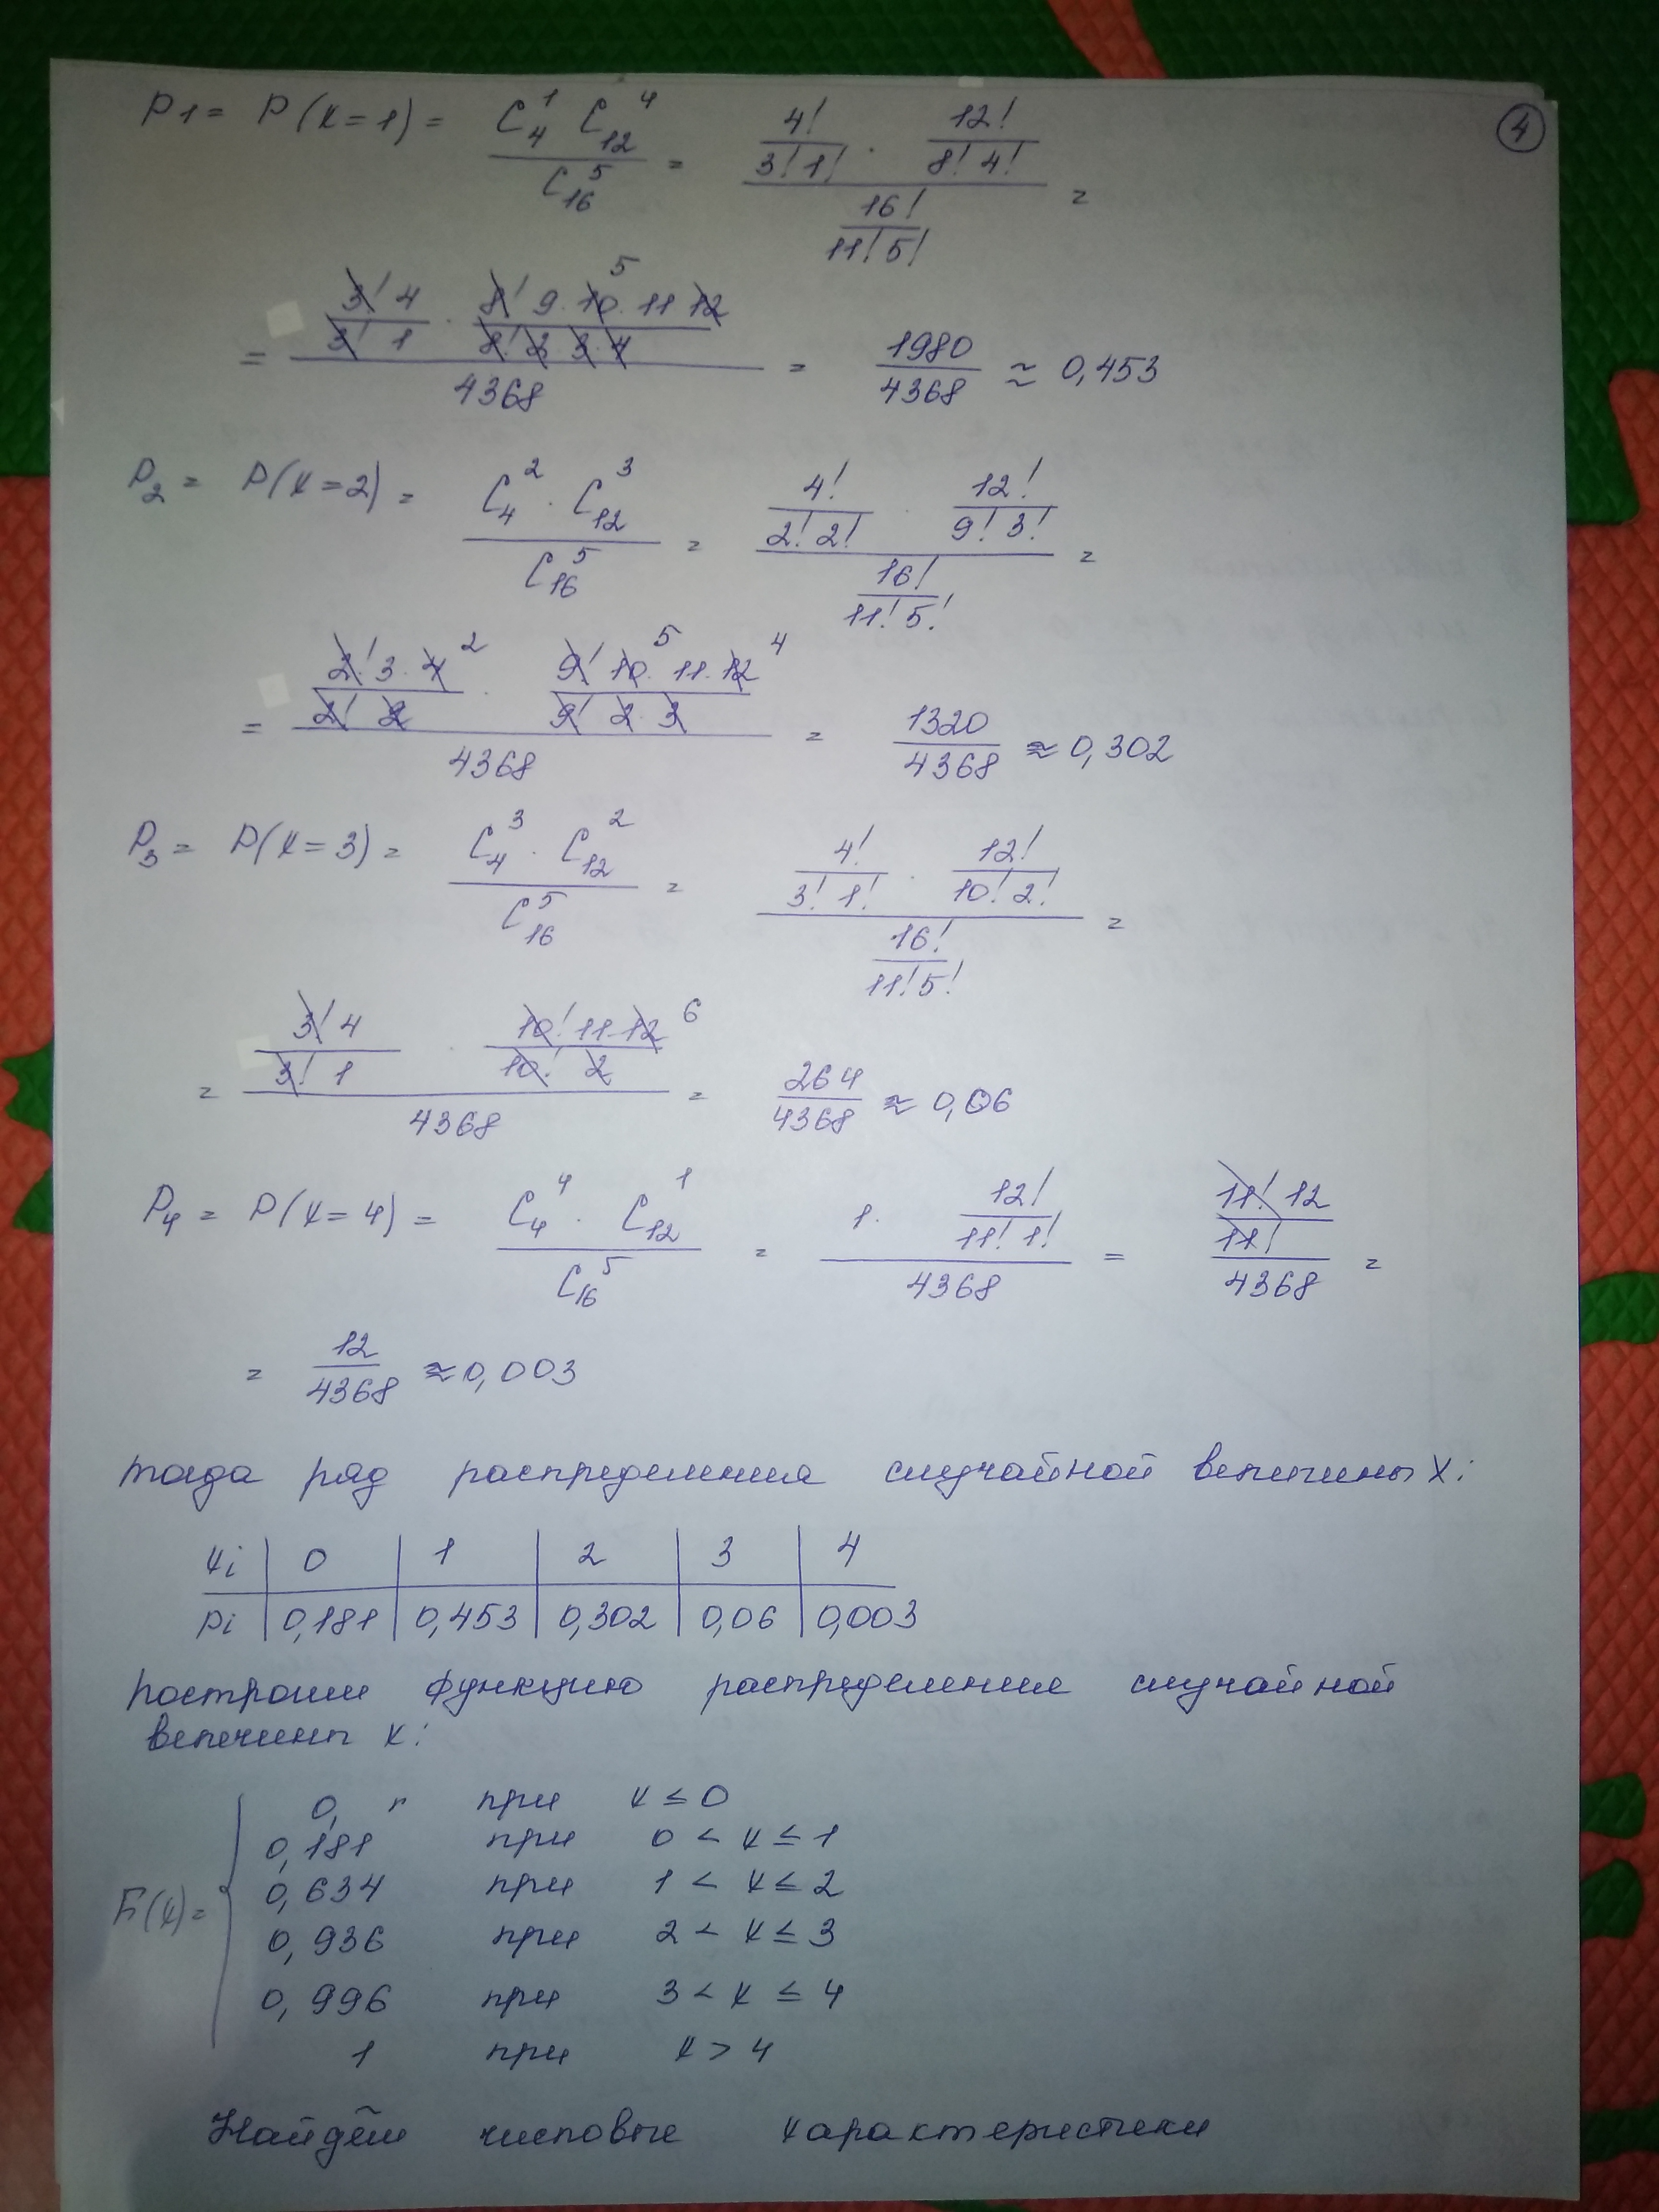 ④
P1 = P(x=1) = (C_4^1 C_12^4)/(C_16^5) = (4!/(3! 1!) · 12!/(8! 4!))/(16!/(11! 5!)) =
= ((3! 4)/(3! 1) · (8! 9·10·11 12)/(8! 2 3 4))/4368 = 1980/4368 ≈ 0,453
5
P_2 = P(x=2) = (C_4^2 · C_12^3)/(C_16^5) = (4!/(2! 2!) · 12!/(9! 3!))/(16!/(11! 5!)) =
= ((2! 3·4)/(2! 2) · (9! 10·11·12)/(9! 2·3))/4368 = 1320/4368 ≈ 0,302
2 5 4
P_3 = P(x=3) = (C_4^3 · C_12^2)/(C_16^5) = (4!/(3! 1!) · 12!/(10! 2!))/(16!/(11! 5!)) =
= ((3! 4)/(3! 1) · (10! 11·12)/(10! 2))/4368 = 264/4368 ≈ 0,06
6
P_4 = P(x=4) = (C_4^4 · C_12^1)/(C_16^5) = (1· 12!/(11! 1!))/4368 = ((11! 12)/(11!))/4368 =
= 12/4368 ≈ 0,003
Тогда ряд распределения случайной величины X:
xi | 0 | 1 | 2 | 3 | 4
pi | 0,181 | 0,453 | 0,302 | 0,06 | 0,003
Построим функцию распределения случайной
величины x:
0, при x ≤ 0
0,181 при 0 < x ≤ 1
0,634 при 1 < x ≤ 2
F(x)=
0,936 при 2 < x ≤ 3
0,996 при 3 < x ≤ 4
1 при x > 4
Найдём числовые характеристики